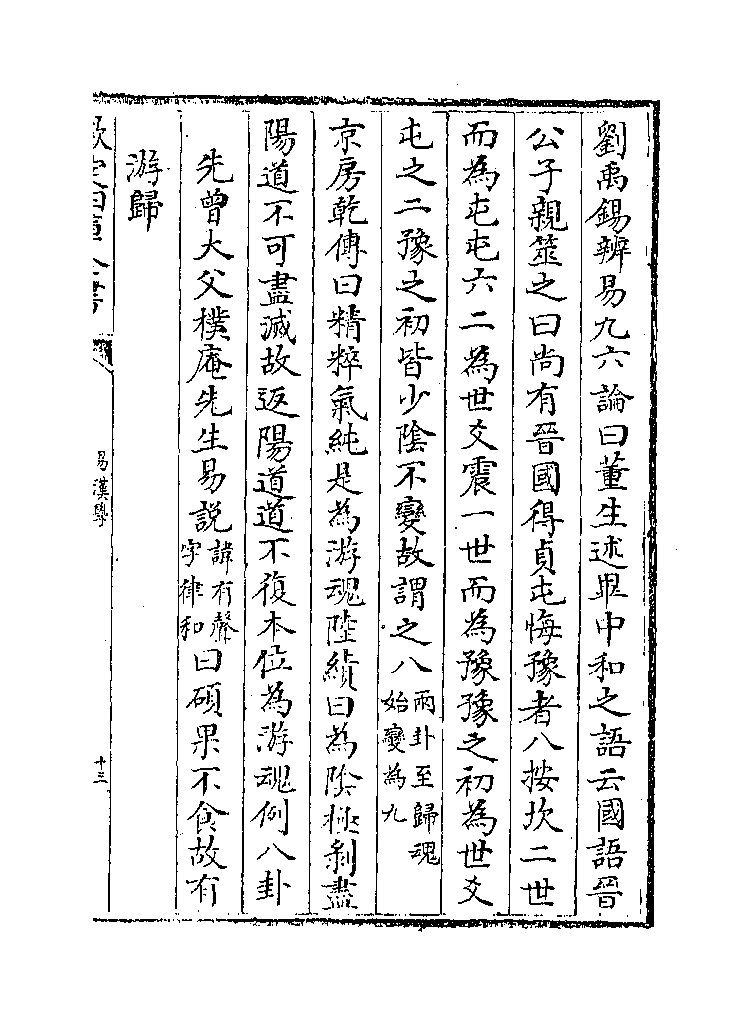 劉禹錫辨易九六論曰董生述畢中和之語云國語晉
公子親筮之曰尚有晉國得貞屯悔豫者八按坎二世
而為屯屯六二為世爻震一世而為豫豫之初為世爻
屯之二豫之初皆少陰不變故謂之八兩卦至歸魂始變為九
京房乾傳曰精粹氣純是為游魂陸績曰為陰極剝盡
陽道不可盡滅故返陽道道不復本位為游魂例八卦
先曾大父樸庵先生易説諱有聲字律和曰碩果不食故有
游歸
欽定四庫全書
易漢學
十三